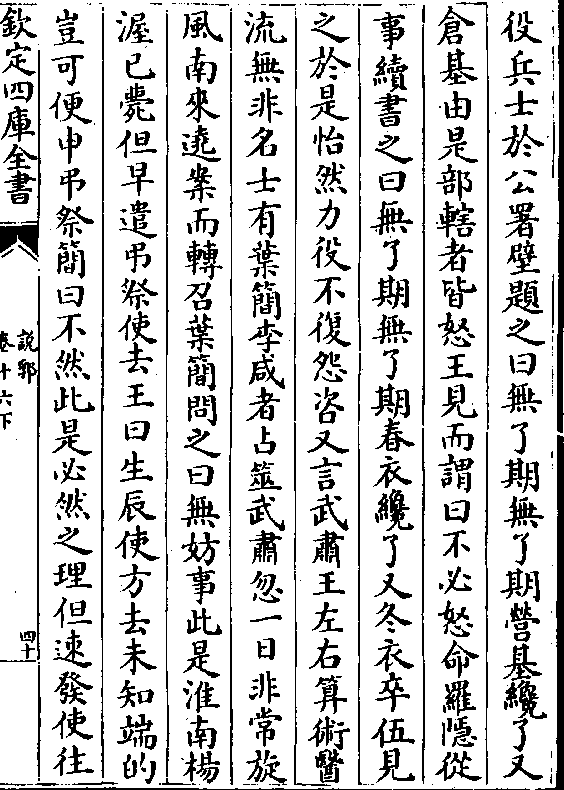 役兵士於公署壁題之曰無了期無了期營基纔了又
倉基由是部轄者皆怒王見而謂曰不必怒命羅隱從
事續書之曰無了期無了期春衣纔了又冬衣卒伍見
之於是怡然力役不復怨咨又言武肅王左右算術醫
流無非名士有葉簡李咸者占筮武肅忽一日非常旋
風南來遶案而轉召葉簡問之曰無妨事此是淮南楊
渥已薨但早遣弔祭使去王曰生辰使方去未知端的
豈可便申弔祭簡曰不然此是必然之理但速發使往
欽定四庫全書
說郛
卷十六下
四十